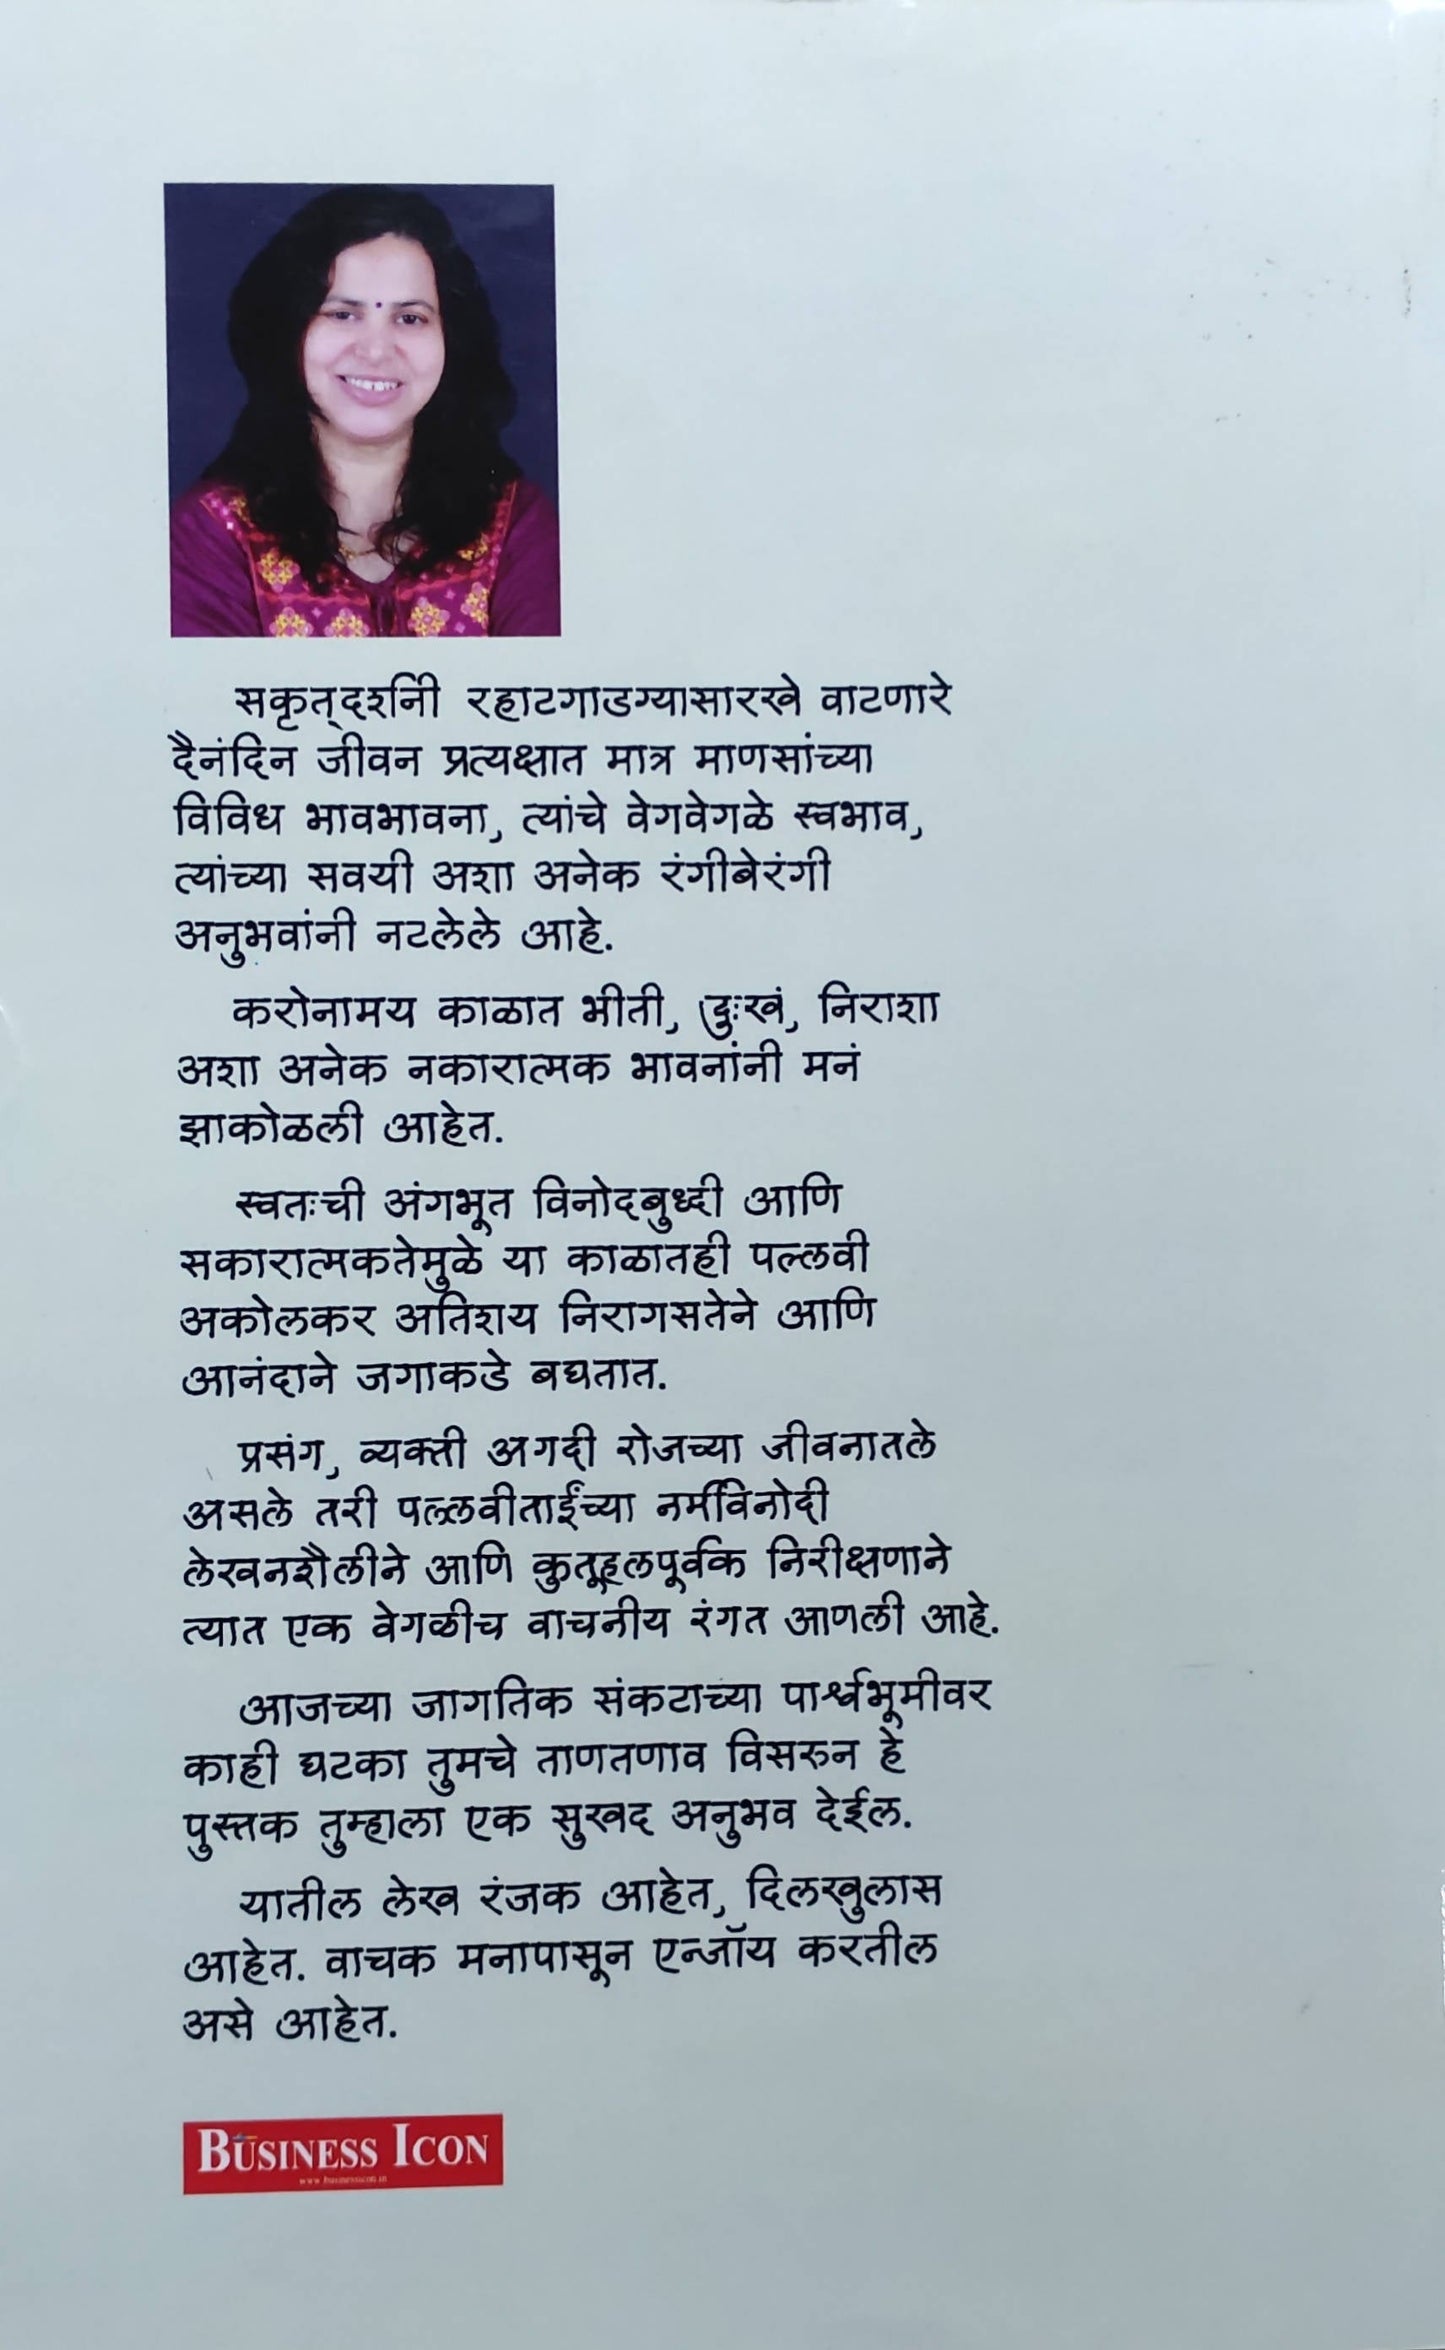 सकृत्‌दर्शनी रहाटगाडग्यासारखे वाटणारे
दैनंदिन जीवन प्रत्यक्षात मात्र माणसांच्या
विविध भावभावना, त्यांचे वेगवेगळे स्वभाव,
त्यांच्या सवयी अशा अनेक रंगीबेरंगी
अनुभवांनी नटलेले आहे.
करोनामय काळात भीती, दुःखं, निराशा
अशा अनेक नकारात्मक भावनांनी मनं
झाकोळली आहेत.
स्वतःची अंगभूत विनोदबुध्दी आणि
सकारात्मकतेमुळे या काळातही पल्लवी
अकोलकर अतिशय निरागसतेने आणि
आनंदाने जगाकडे बघतात.
प्रसंग, व्यक्ती अगदी रोजच्या जीवनातले
असले तरी पल्लवीताईंच्या नर्मविनोदी
लेखनशैलीने आणि कुतूहलपूर्वक निरीक्षणाने
त्यात एक वेगळीच वाचनीय रंगत आणली आहे.
आजच्या जागतिक संकटाच्या पार्श्वभूमीवर
काही घटका तुमचे ताणतणाव विसरुन हे
पुस्तक तुम्हाला एक सुखद अनुभव देईल.
यातील लेख रंजक आहेत, दिलखुलास
आहेत. वाचक मनापासून एन्जॉय करतील
असे आहेत.
BUSINESS ICON
www.businessicon.in